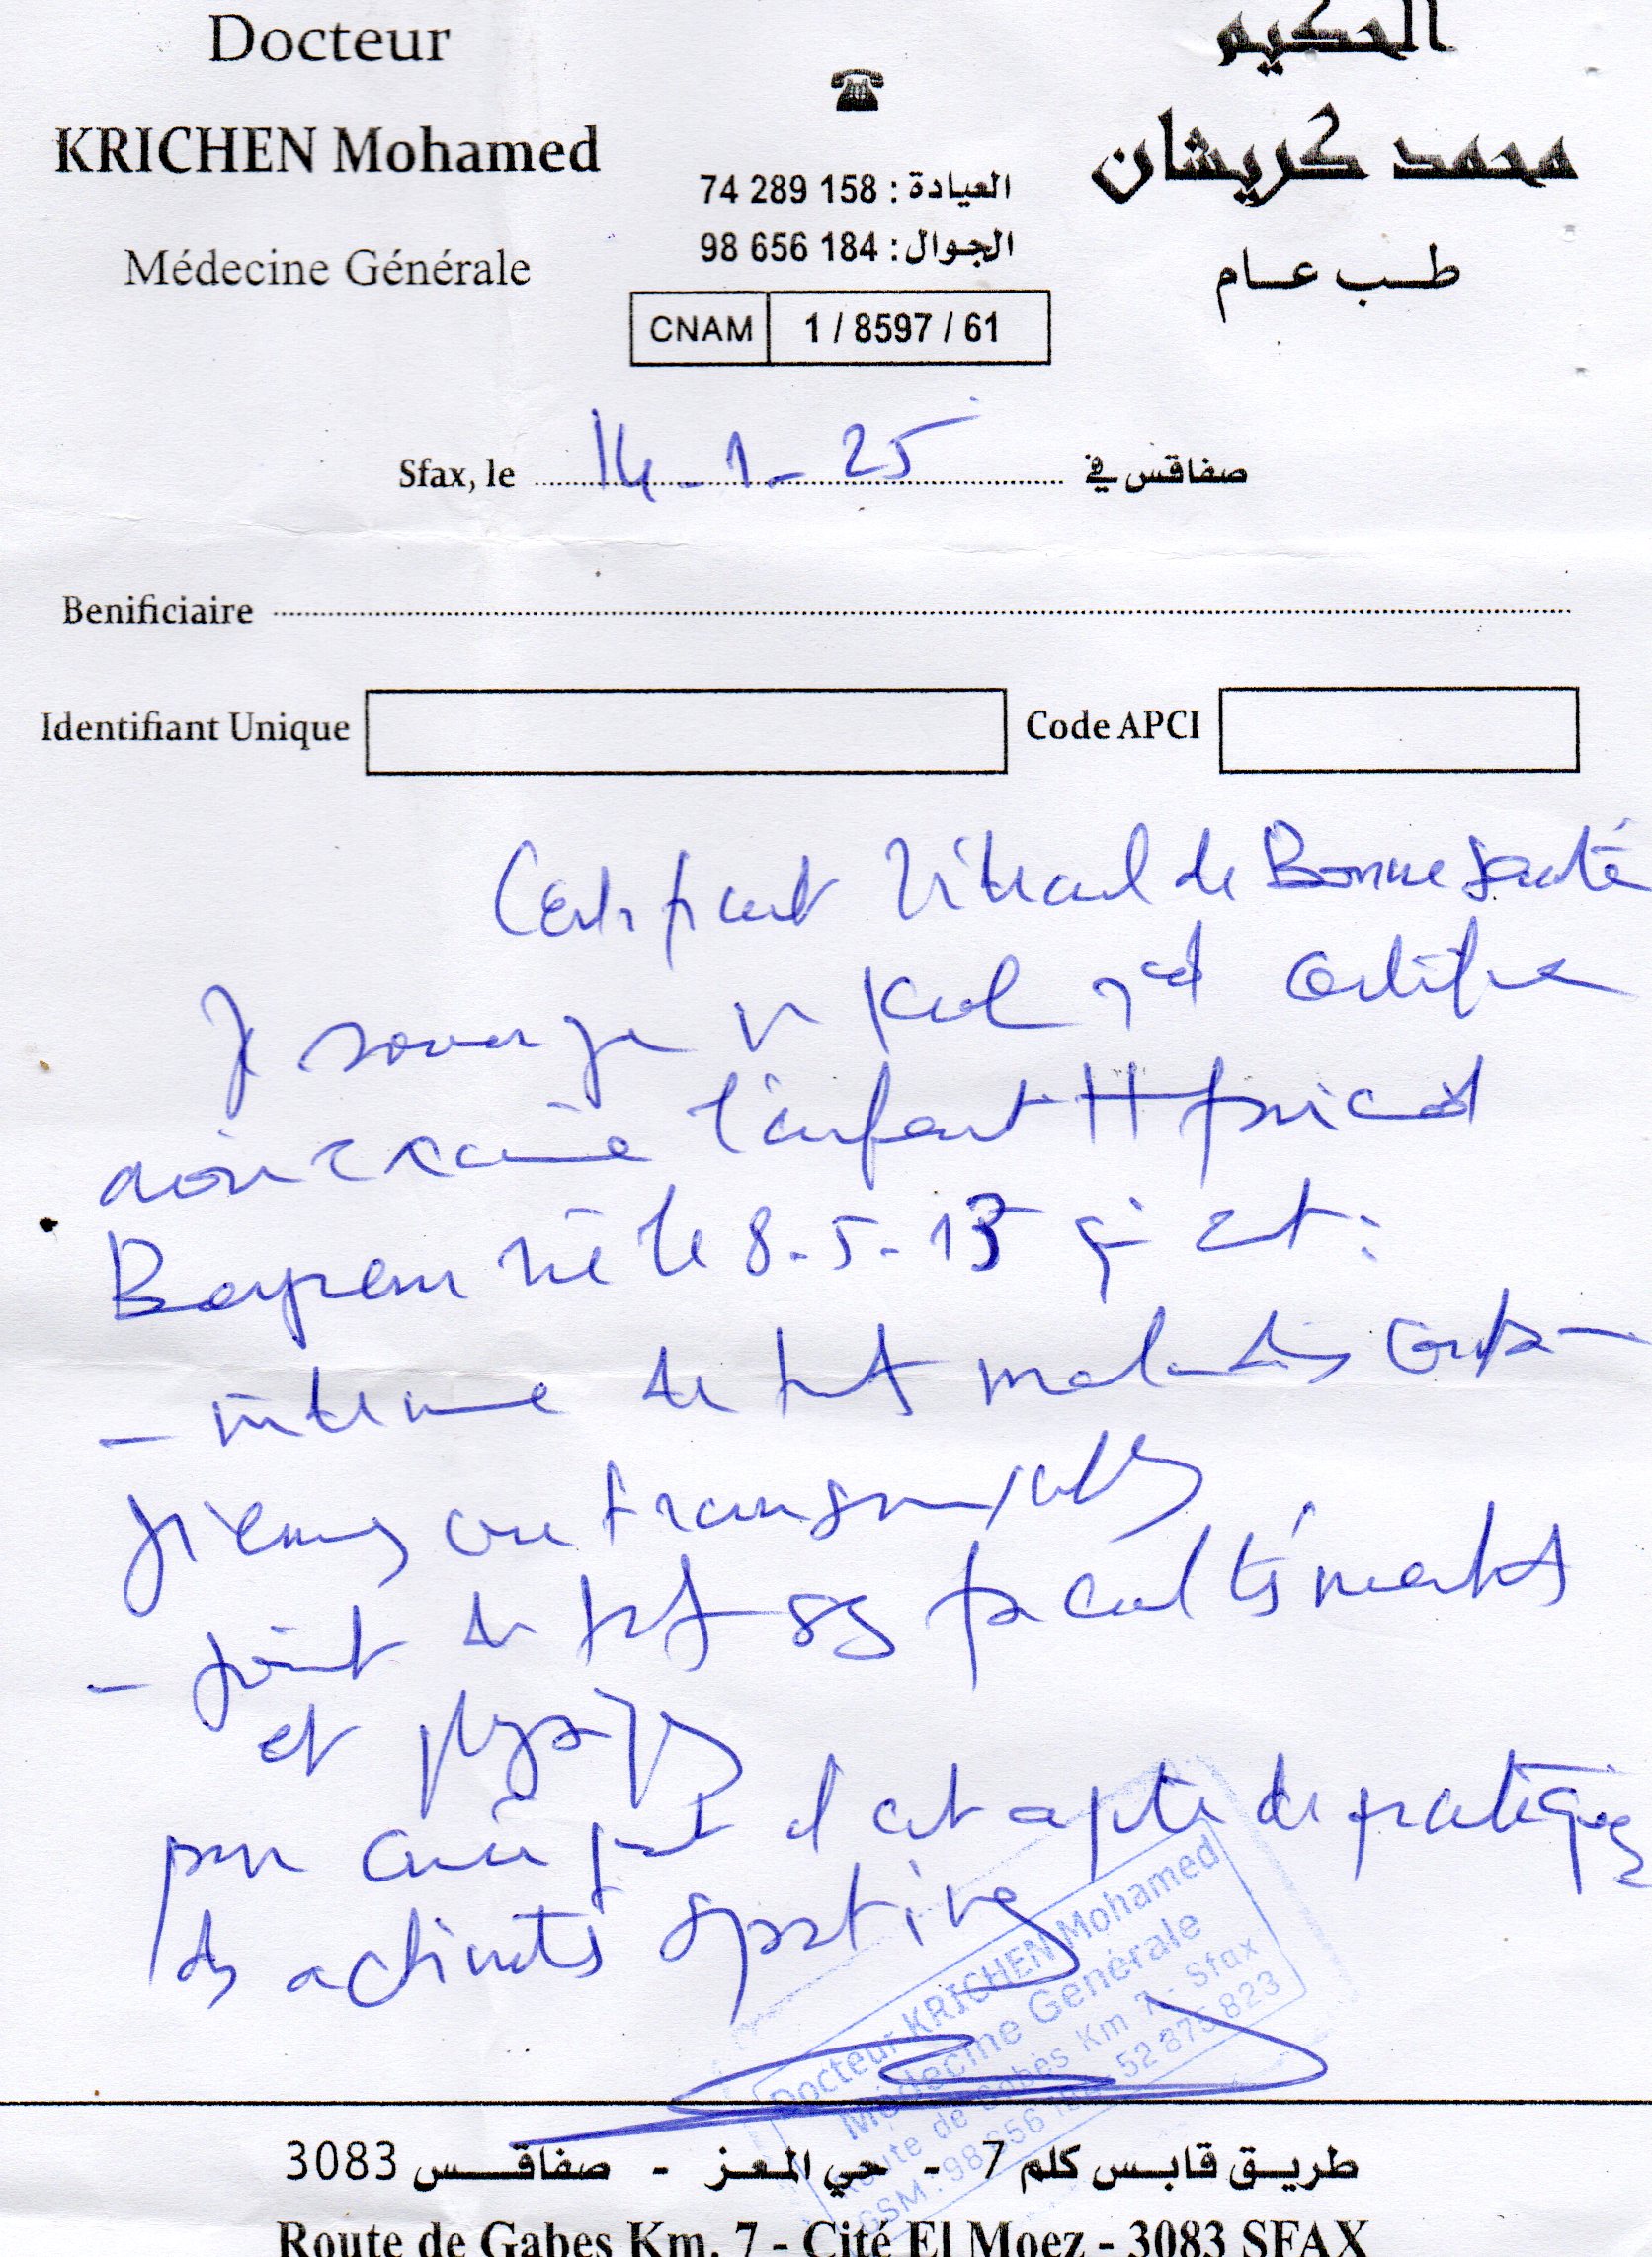 Docteur
KRICHEN Mohamed
Médecine Générale
العيادة : 158 289 74
الجوال : 184 656 98
CNAM 1 / 8597 / 61
الحكيم
محمد كريشان
طب عام
Sfax, le 14-1-25 صفاقس في
Benificiaire
Identifiant Unique Code APCI
Certificat de Bonne Santé
Je certifie
avoir l'enfant
Bayrem né le 8-5-13 qui est :
- indemne de maladies conta-
gieuses ou transmissibles
- jouit de ses facultés mentales
et physiques
par conséquent il est apte de pratiquer
des activités sportives
Docteur KRICHEN Mohamed
Médecine Générale
Route de Gabès Km 7 - Sfax
GSM : 98 656 52 875 823
طريق قابس كلم 7 - حي المعز - صفاقس 3083
Route de Gabes Km. 7 - Cité El Moez - 3083 SFAX